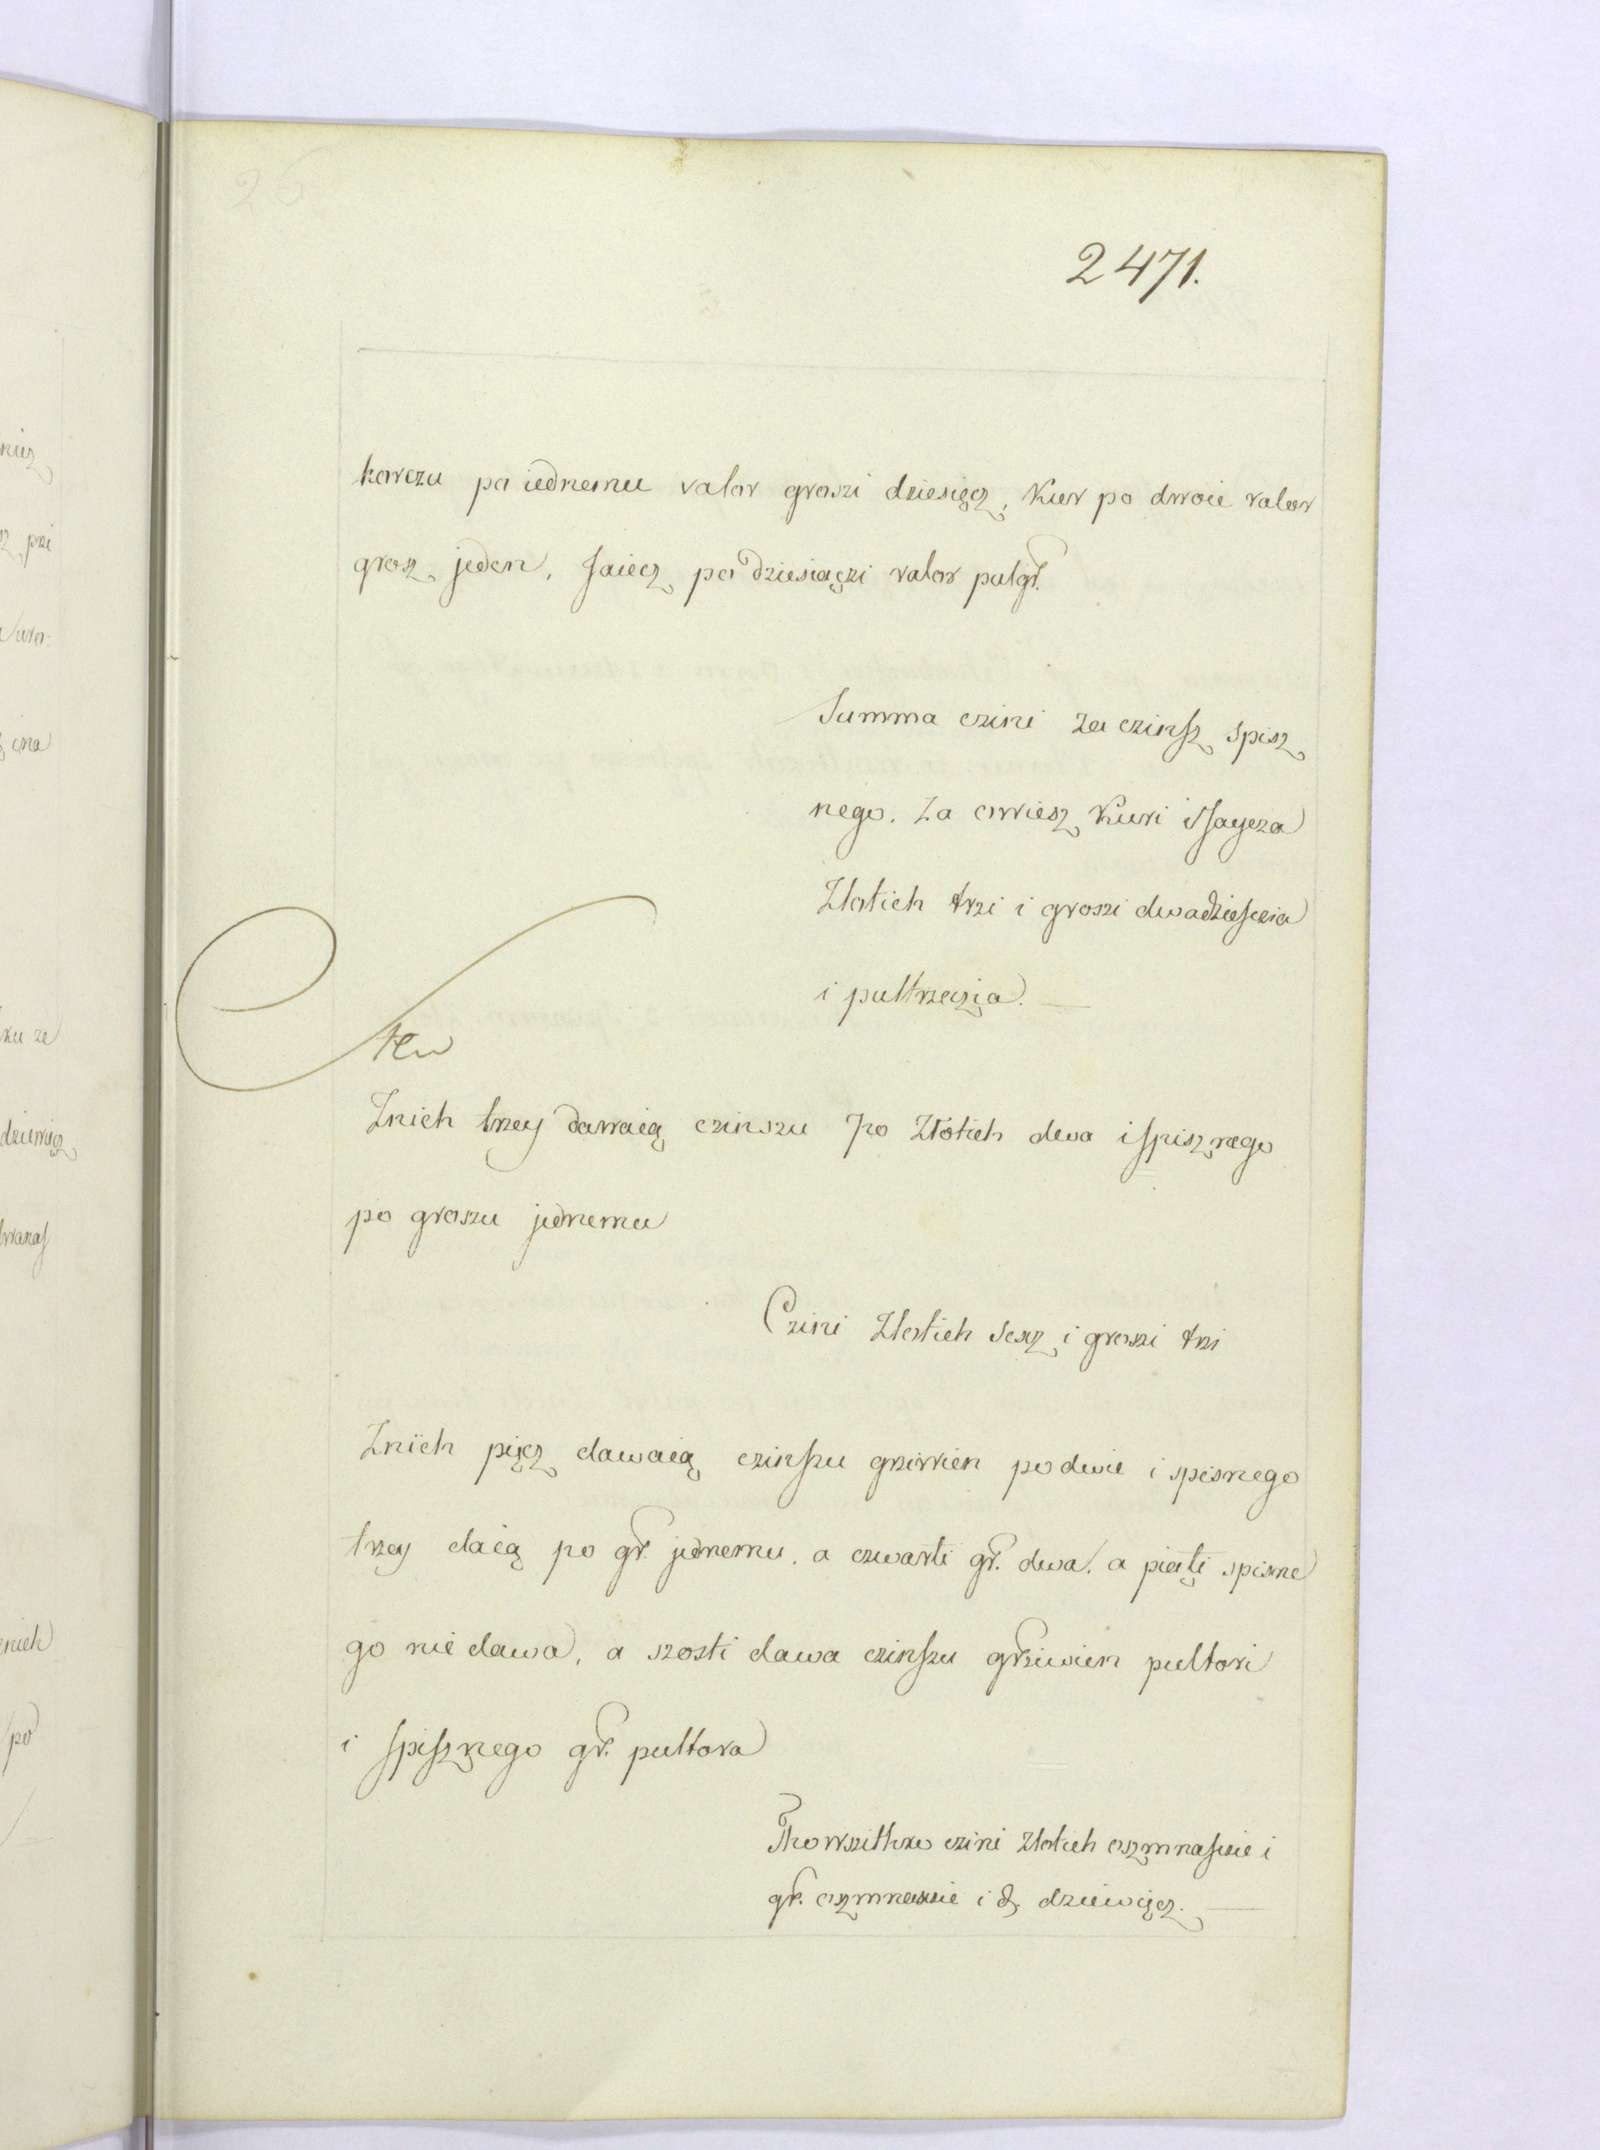 26
2471.
korczu po iednemu valor groszi dziesięcz, Kur po dwoie valor
grosz jeden, Jaiecz po dziesiączi valor pułgr.
Summa czini za czinsz spisz
nego. Za owiesz Kuri i Jaycza
Złotich trzi i groszi dwadziescia
i pułtrzecia.
Znich trzey dawaią czinszu po Złotich dwa i spisznego
po groszu jednemu
Czini Złotich sesz i groszi trzi
Znich pięcz dawaią czinszu grziwien po dwie i spisnego
trzey daią po gr. jednemu, a czwarti gr. dwa, a piąti spisne
go nie dawa, a szosti dawa czinszu grziwien pułtori
i spisznego gr. pułtora
Tho wszithko czini Złotich oszmnascie i
gr. oszmnascie i d. dziewięcz.